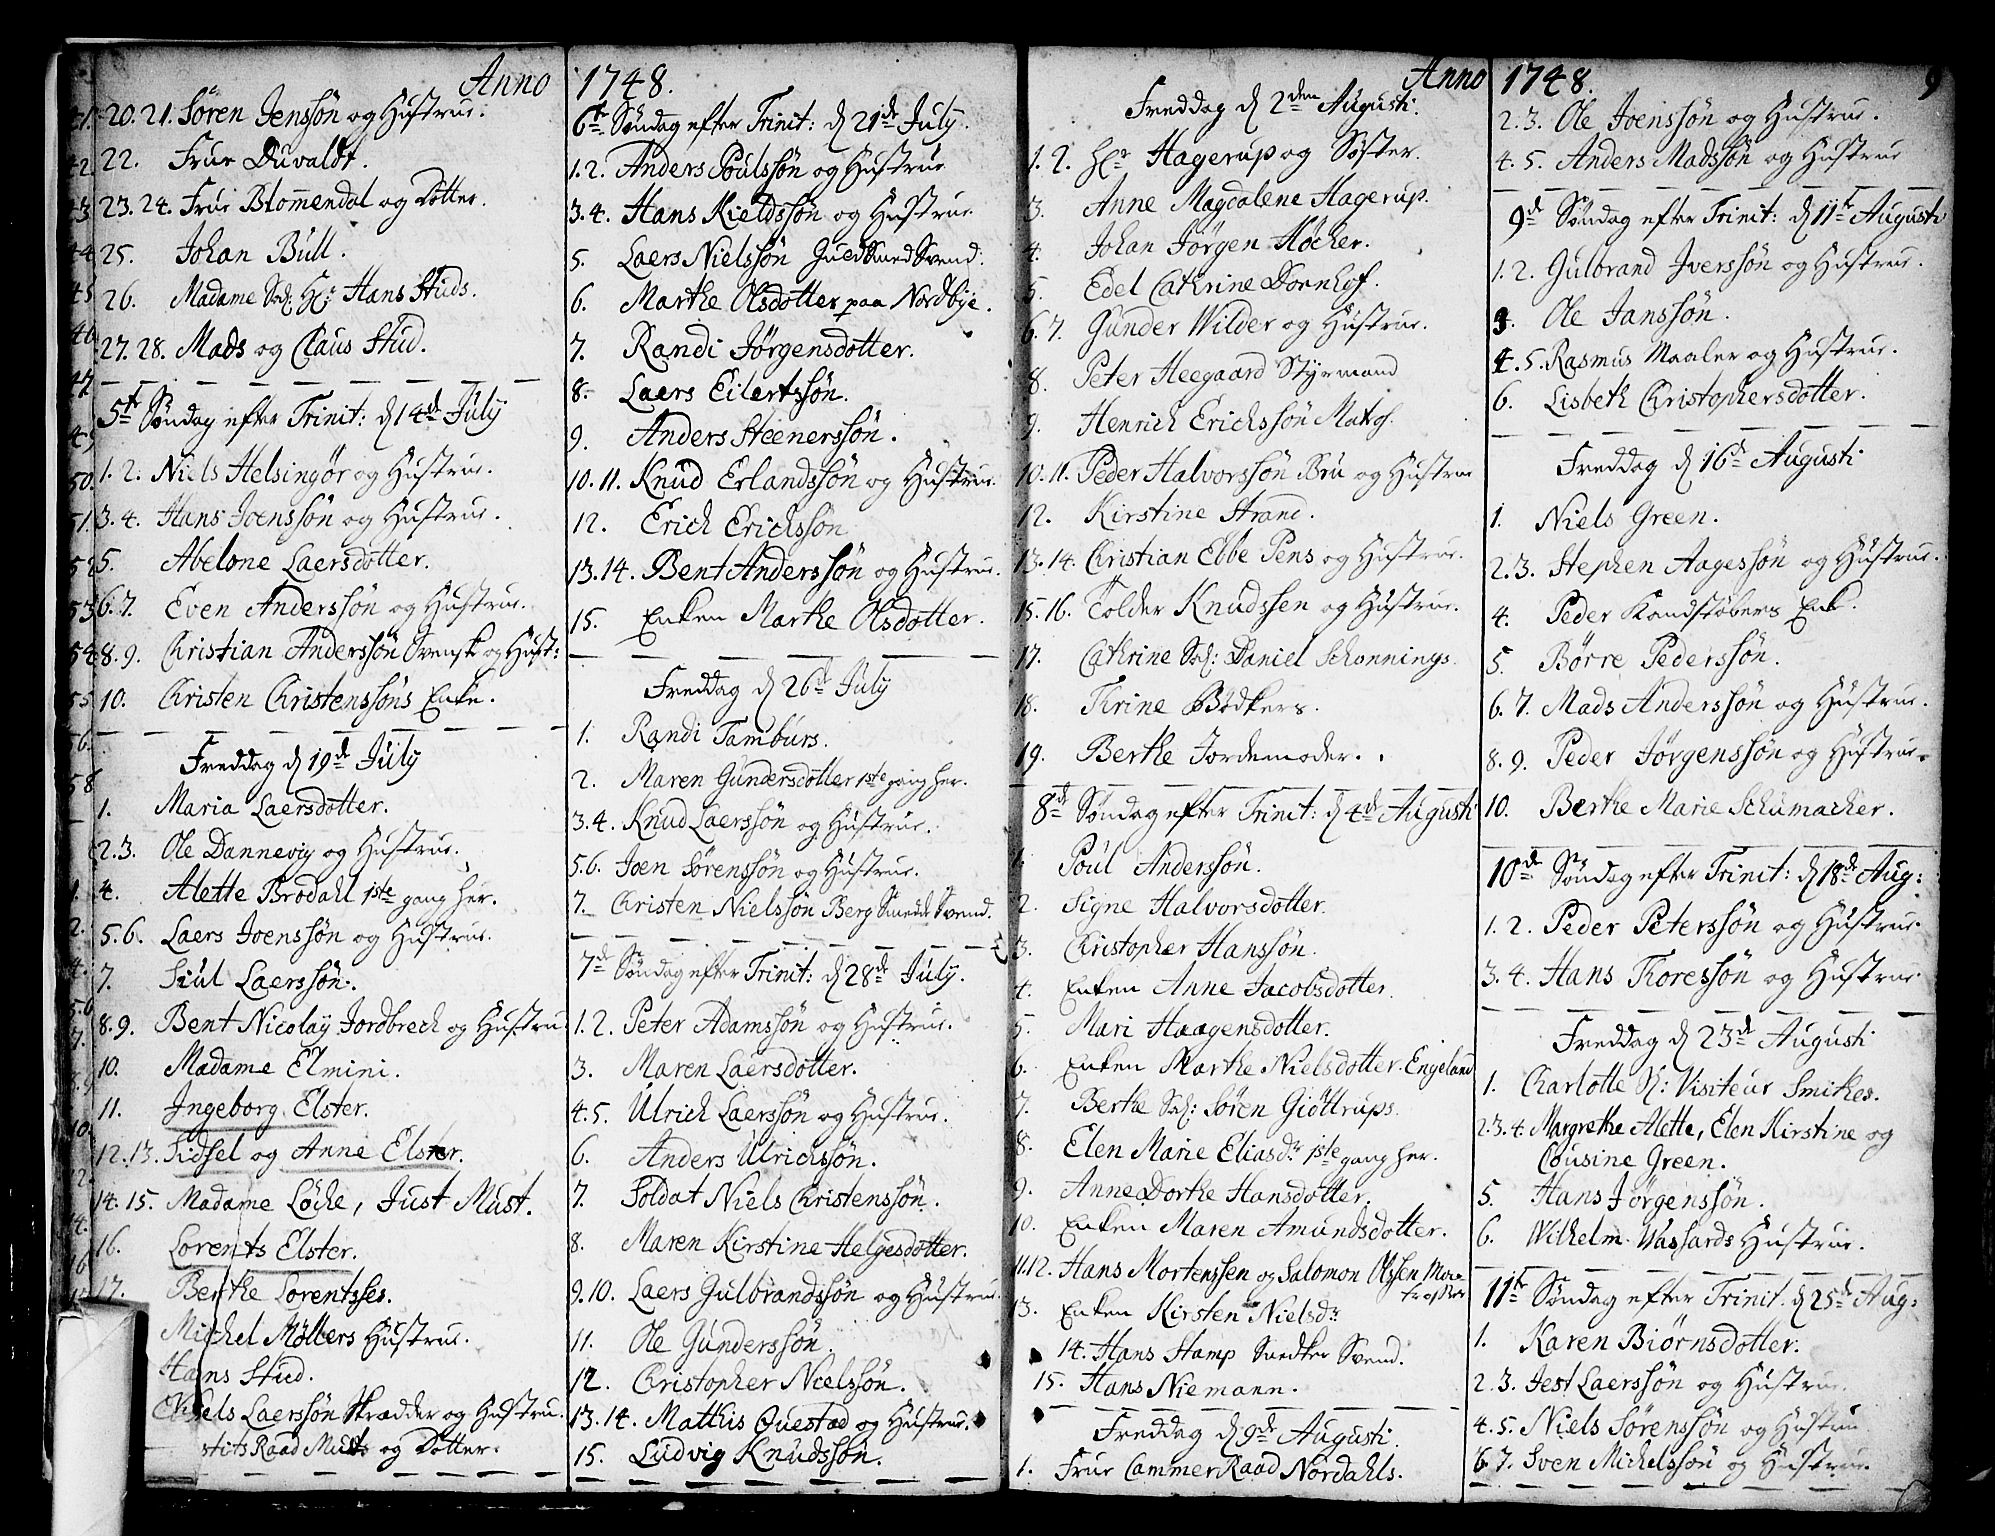 Anno
20. 21. Sören Jenssön og Hustrue.
22. Frue Duvaldt.
23. 24. Frue Blomendal og Dotter.
25. Johan Bull.
26. Madame Sal: Hr Hans Studs.
27. 28. Mads og Claus Stud.
5te Søndag efter Trinit: d 14de July
1. 2. Niels Helsingör og Hustrue.
3. 4. Hans Joenssön og Hustrue.
5. Abelone Laersdotter.
6. 7. Even Anderssön og Hustrue.
8. 9. Christian Anderssön Svensk og Hust:
10. Christen Christenssöns Enke.
Freddag d 19de July
1. Maria Laersdotter.
2. 3. Ole Dannevig og Hustrue.
4. Alette Brodahl 1ste gang her.
5. 6. Laers Joenssön og Hustrue.
7. Siul Laerssön.
8. 9. Bent Nicolaÿ Jordbrech og Hustru
10. Madame Elmini.
11. Ingeborg Elster.
12. 13. Sidsel og Anne Elster.
14. 15. Madame Löche, Just Must.
16. Lorents Elster.
17. Berthe Lorentsses.
Michel Möllers Hustrue.
Hans Stud.
Niels Laerssön Skrædder og Hustrue.
stits Raad Musts og Dotter.
1748.
6te Søndag efter Trinit: d 21de July.
1. 2. Anders Poulssön og Hustrue
3. 4. Hans Kieldssön og Hustrue.
5. Laers Nielssön Guldsmed Svend.
6. Marthe Olsdotter paa Nordbÿe.
7. Randi Jörgensdotter.
8. Laers Eilertssön.
9. Anders Steenerssön.
10. 11. Knud Erlandssön og Hustrue.
12. Erich Erichssön
13. 14. Bent Anderssön og Hustrue.
15. Enken Marthe Olsdotter.
Freddag d 26de July
1. Randi Tamburs.
2. Maren Gundersdotter 1ste gang her.
3. 4. Knud Laerssön og Hustrue.
5. 6. Joen Sörenssön og Hustrue.
7. Christen Nielssön Berg Smedde Svend.
7de Søndag efter Trinit: d 28de July.
1. 2. Peter Adamssön og Hustrue.
3. Maren Laersdotter.
4. 5. Ulrich Laerssön og Hustrue.
6. Anders Ulrichssön.
7. Soldat Niels Christenssön.
8. Maren Kirstine Helgesdotter.
9. 10. Laers Gulbrandssön og Hustrue.
11. Ole Gunderssön.
12. Christopher Nielssön.
13. 14. Matthis Questad og Hustrue.
15. Ludvig Knudssön.
Anno
Freddag d 2den Augusti.
1. 2. Hr Hagerup og Søster.
3. Anne Magdalene Hagerup.
4. Johan Jörgen Höcher.
5. Edel Cathrine Dornhof.
6. 7. Gunder Wilder og Hustrue.
8. Peter Heegaard Styrmand
9. Henrich Erichssön
10. 11. Peder Halvorssön Bru og Hustrue
12. Kirstine Strand.
13. 14. Christian Ebbe Pens og Hustrue.
15. 16. Tolder Knudssen og Hustrue.
17. Cathrine Sal: Daniel Schonnings.
18. Thrine Bödkers.
19. Berthe Jordemoder.
8de Søndag efter Trinit: d 4de Augusti
1. Poul Anderssön.
2. Signe Halvorsdotter.
3. Christopher Hanssön.
4. Enken Anne Jacobsdotter.
5. Mari Haagensdotter.
6. Enken Marthe Nielsdotter Engeland
7. Berthe Sal: Sören Giöttrups.
8. Elen Marie Eliasdr 1ste gang her.
9. Anne Dorthe Hansdotter.
10. Enken Maren Amundsdotter.
11. 12. Hans Mortenssen og Salomon Olssen
13. Enken Kirsten Nielsdr
14. Hans Stamp Snedker Svend.
15. Hans Niemann.
Freddag d 9de Augusti.
1. Frue Cammer Raad Nordahls.
1748. 9
2. 3. Ole Joenssön og Hustrue.
4. 5. Anders Madssön og Hustrue
9de Søndag efter Trinit: d 11te Augusti
1. 2. Gulbrand Iverssön og Hustrue.
3. Ole Janssön.
4. 5. Rasmus Maaler og Hustrue.
6. Lisbeth Christophersdotter.
Freddag d 16de Augusti
1. Niels Green.
2. 3. Stephen Aagessön og Hustrue.
4. Peder Kandstøbers Enk.
5. Börre Pederssön.
6. 7. Mads Anderssön og Hustrue.
8. 9. Peder Jörgenssön og Hustrue.
10. Berthe Marie Schumacher.
10de Søndag efter Trinit: d 18de Aug:
1. 2. Peder Peterssön og Hustrue.
3. 4. Hans Thoressön og Hustrue
Freddag d 23de Augusti
1. Charlotte Sl: Visiteur Smithes.
2. 3. 4. Margrethe Alette, Elen Kirstine og
Cousine Green.
5. Hans Jörgenssön.
6. Wilhelm Wassards Hustrue.
11te Søndag efter Trinit. d 25de Aug:
1. Karen Biörnsdotter.
2. 3. Jest Laerssön og Hustrue.
4. 5. Niels Sörenssön og Hustrue
6. 7. Sven Michelssön og Hustrue.